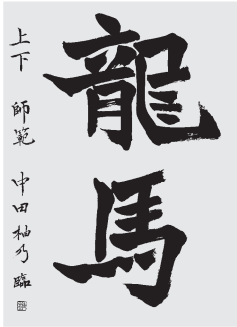 龍馬
上下 師範 中田柚乃 臨